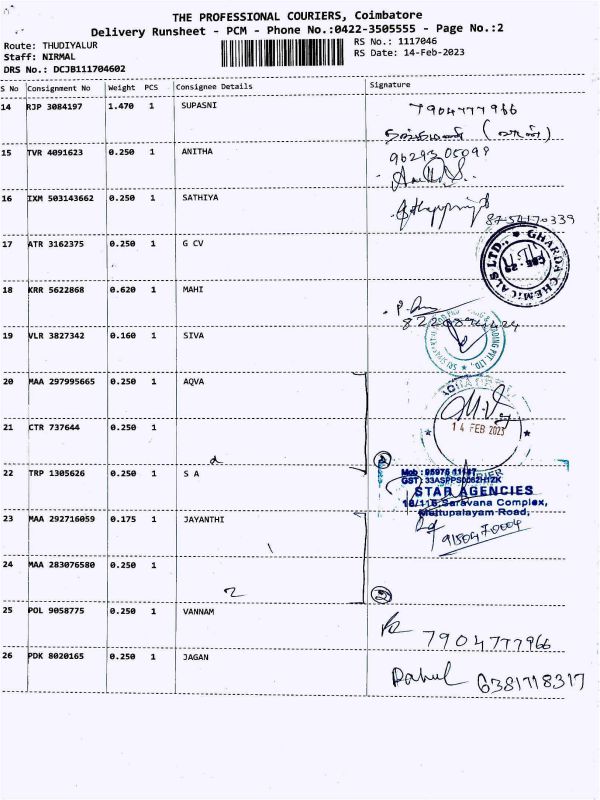 THE PROFESSIONAL COURIERS, Coimbatore
Delivery Runsheet - PCM - Phone No.:0422-3505555 - Page No.:2
Route: THUDIYALUR
RS No.: 1117046
Staff: NIRMAL
RS Date: 14-Feb-2023
DRS No.: DCJB111704602
S No Consignment No Weight PCS Consignee Details Signature
14 RJP 3084197 1.470 1 SUPASNI 7904777966
15 TVR 4091623 0.250 1 ANITHA
16 IXM 503143662 0.250 1 SATHIYA 8754170339
17 ATR 3162375 0.250 1 G CV
GHARDA CHEMICALS LTD.,
18 KRR 5622868 0.620 1 MAHI
19 VLR 3827342 0.160 1 SIVA
20 MAA 297995665 0.250 1 AQVA
14 FEB 2023
21 CTR 737644 0.250 1
2
22 TRP 1305626 0.250 1 S A
STAR AGENCIES
Saravana Complex,
Mettupalayam Road,
23 MAA 292716059 0.175 1 JAYANTHI
9150470004
24 MAA 283076580 0.250 1
2
25 POL 9058775 0.250 1 VANNAM 7904777966
26 PDK 8020165 0.250 1 JAGAN Rahul 6381718317